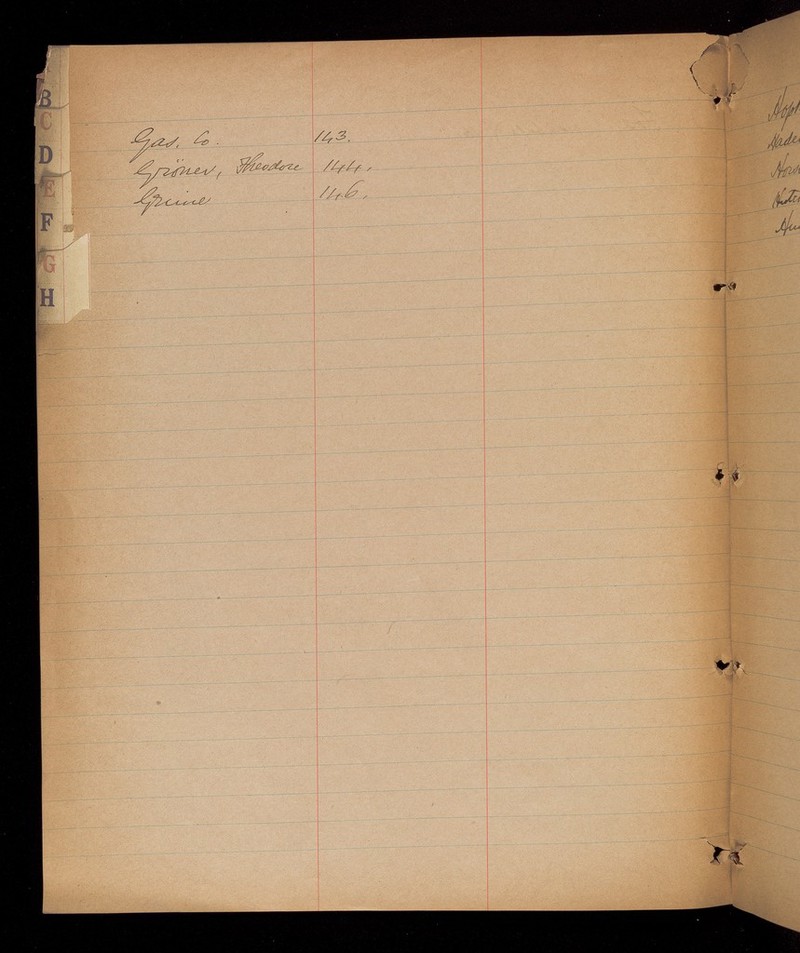 B
C
D
E
F
G
H
Gas. Co. 143.
Gröner, Theodore 144.
Grüne 146.